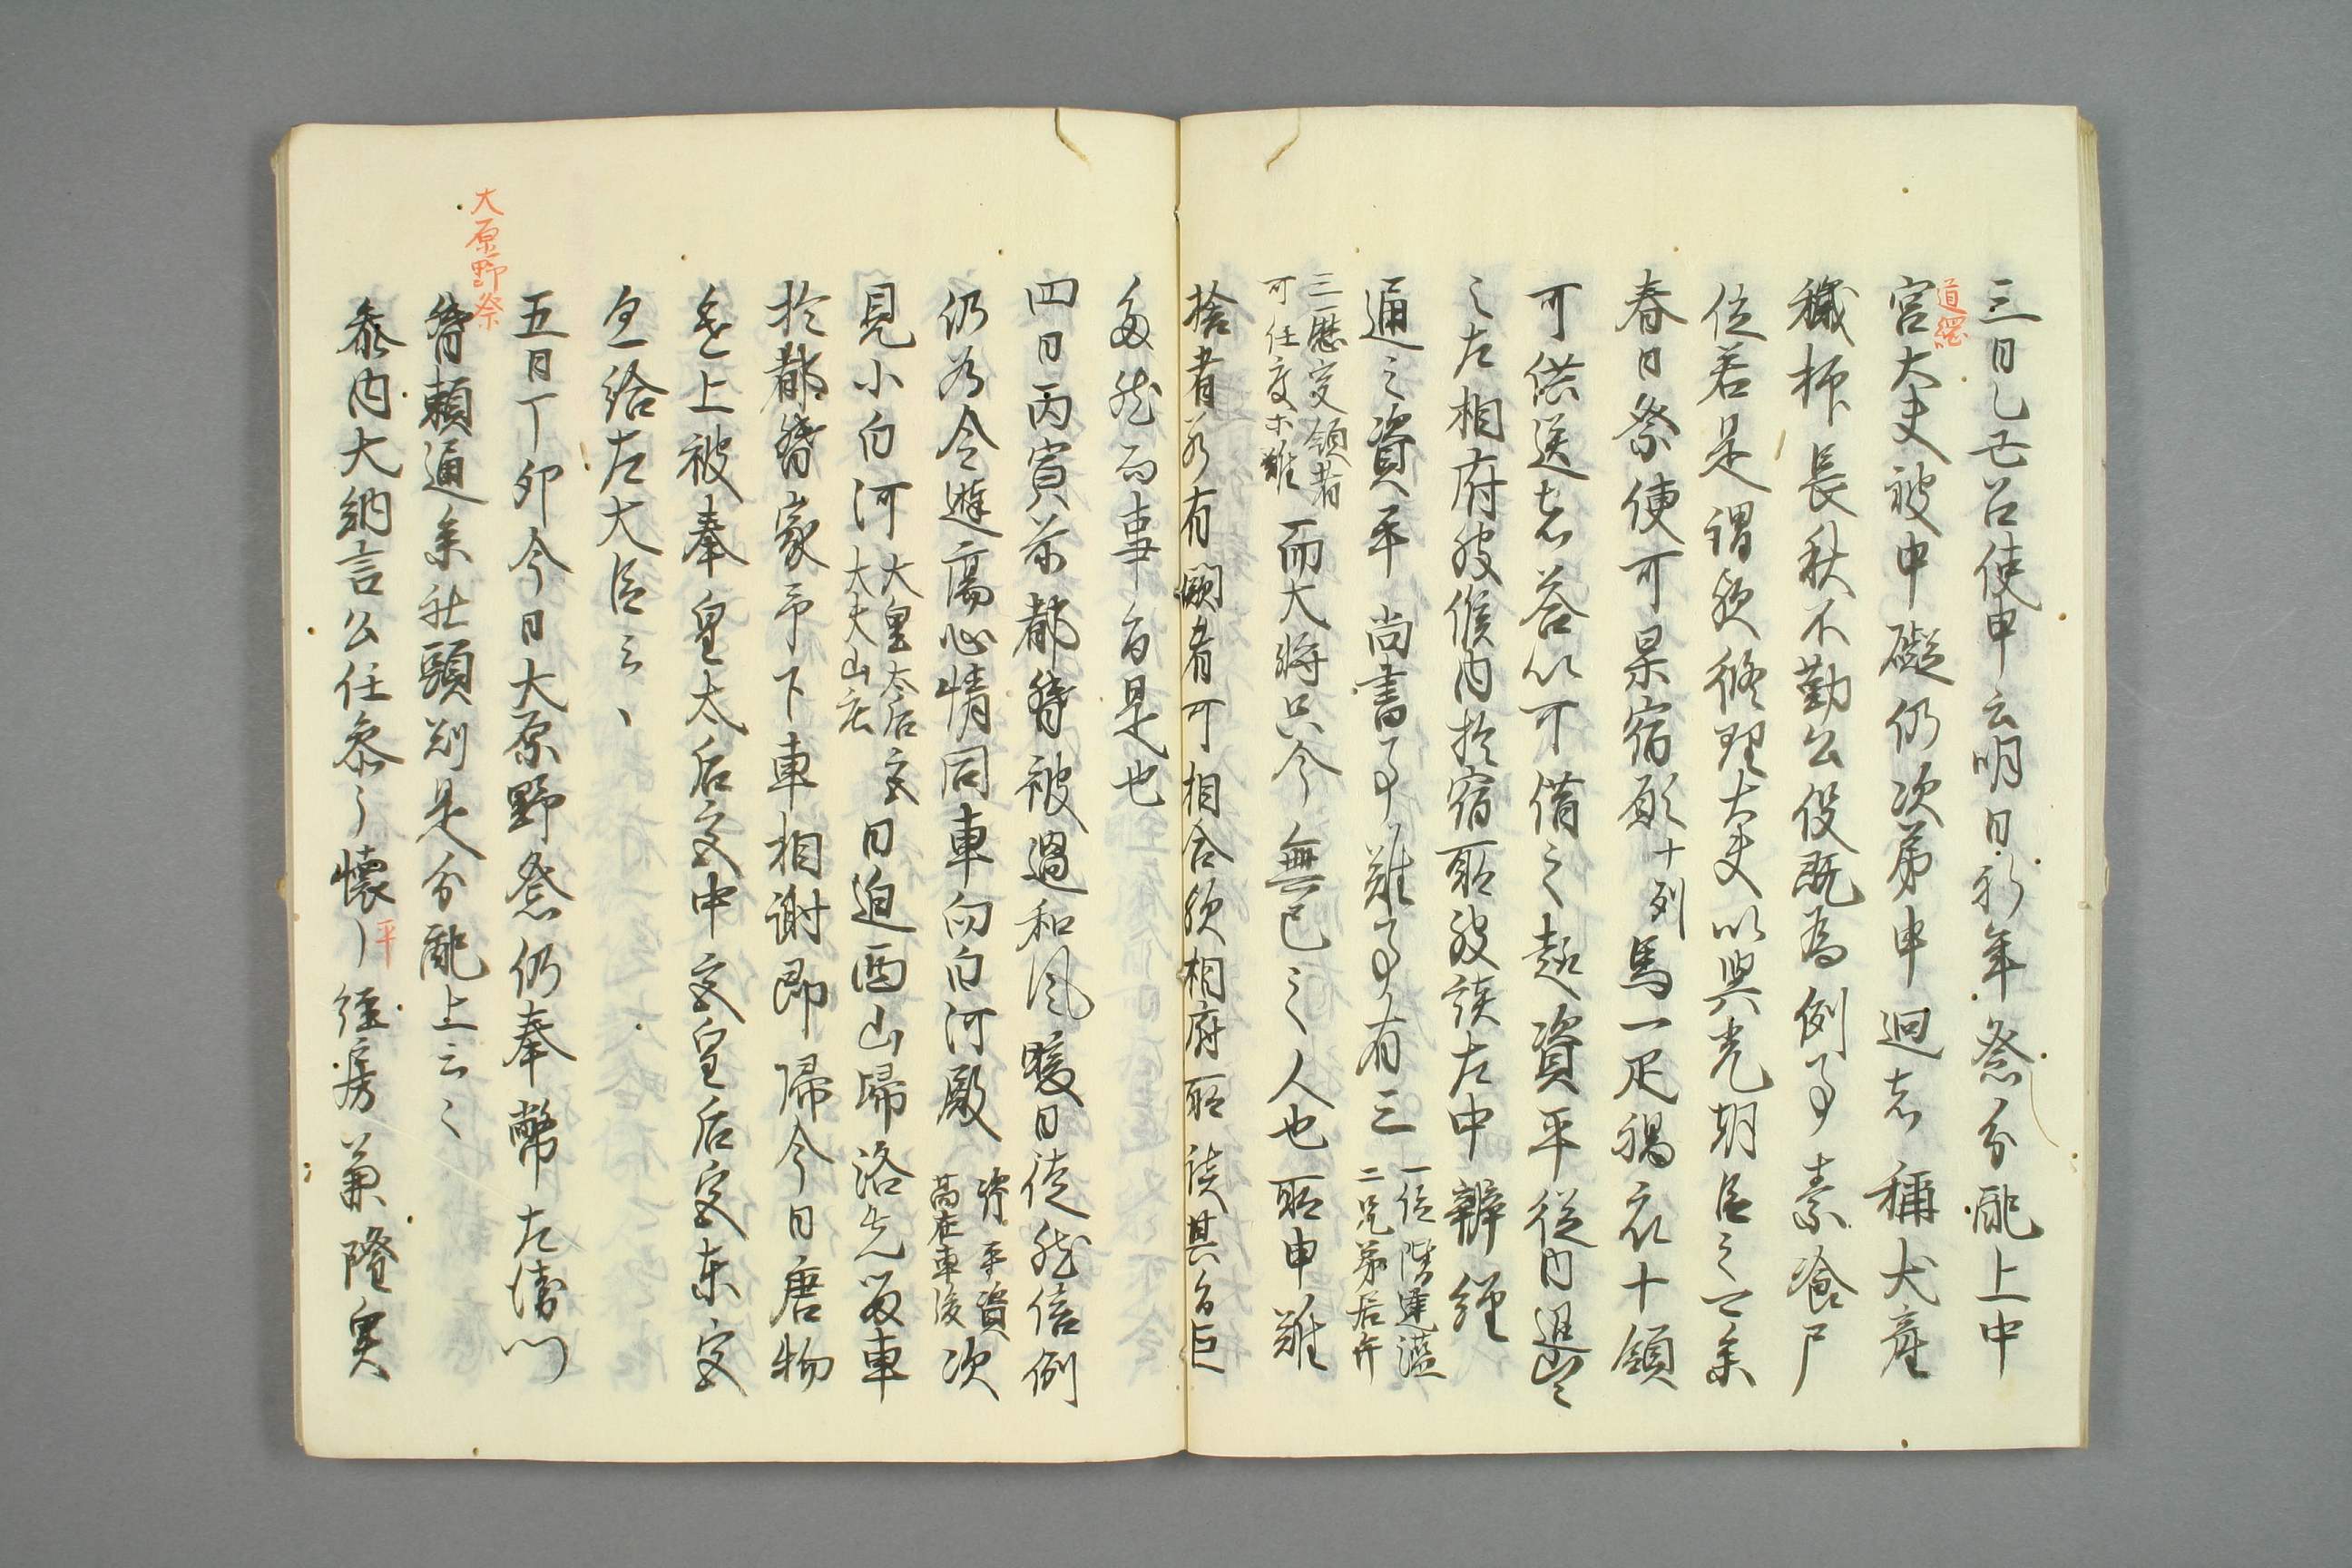 三日乙丑召使申云明日祈年祭分配上中
道綱
宮大夫被申礙仍次第申廻者稱犬産
穢抑長秋不勤公役既為例事素飡尸
位若是謂歟修理大夫以興光朝臣之一条
春日祭使可果宿願十列馬一疋褐衣十領
可供送者答以可借之趣資平従内退出云
之左相府被候内於宿所被談左中辨経
通之資平尚書事難事有三 一位階運澁 二兄弟居弁
三歴受領者 可任度々難 而大将只今無已之人也所申難
捨者若有闕者可相含歟相府所談其旨巨
多然而事旨是也
四日丙寅前都督被過和風暖日徒然倍例
仍為令遊蕩心情同車向白河殿 資平資 高在車後 次
見小白河 大皇太后宮 大夫山庄 日迫酉山帰洛先留車
於都督家予下車相謝即帰今日唐物
遷上被奉皇太后宮中宮皇后宮東宮
且給左大臣云々
大原野祭
五日丁卯今日大原野祭仍奉幣左衛門
督頼通参社頭別是分配上云々
参内大納言公任参了懐ー平経房兼隆実